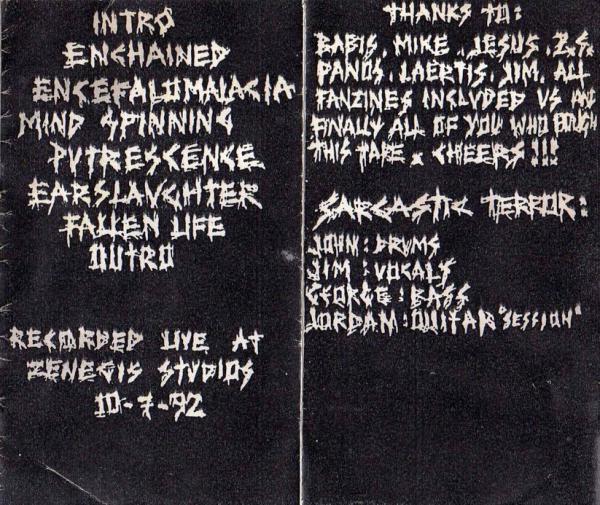 INTRO
ENCHAINED
ENCEFALOMALACIA
MIND SPINNING
PUTRESCENCE
EARSLAUGHTER
FALLEN LIFE
OUTRO
RECORDED LIVE AT
ZENEGIS STUDIOS
10-7-92
THANKS TO:
BABIS, MIKE, JESUS, Z.S.
PANOS, LAERTIS, JIM, ALL
FANZINES INCLUDED US AND
FINALLY ALL OF YOU WHO BOUGH
THIS TAPE & CHEERS!!!
SARCASTIC TERROR:
JOHN: DRUMS
JIM: VOCALS
GEORGE: BASS
JORDAM: GUITAR "SESSION"